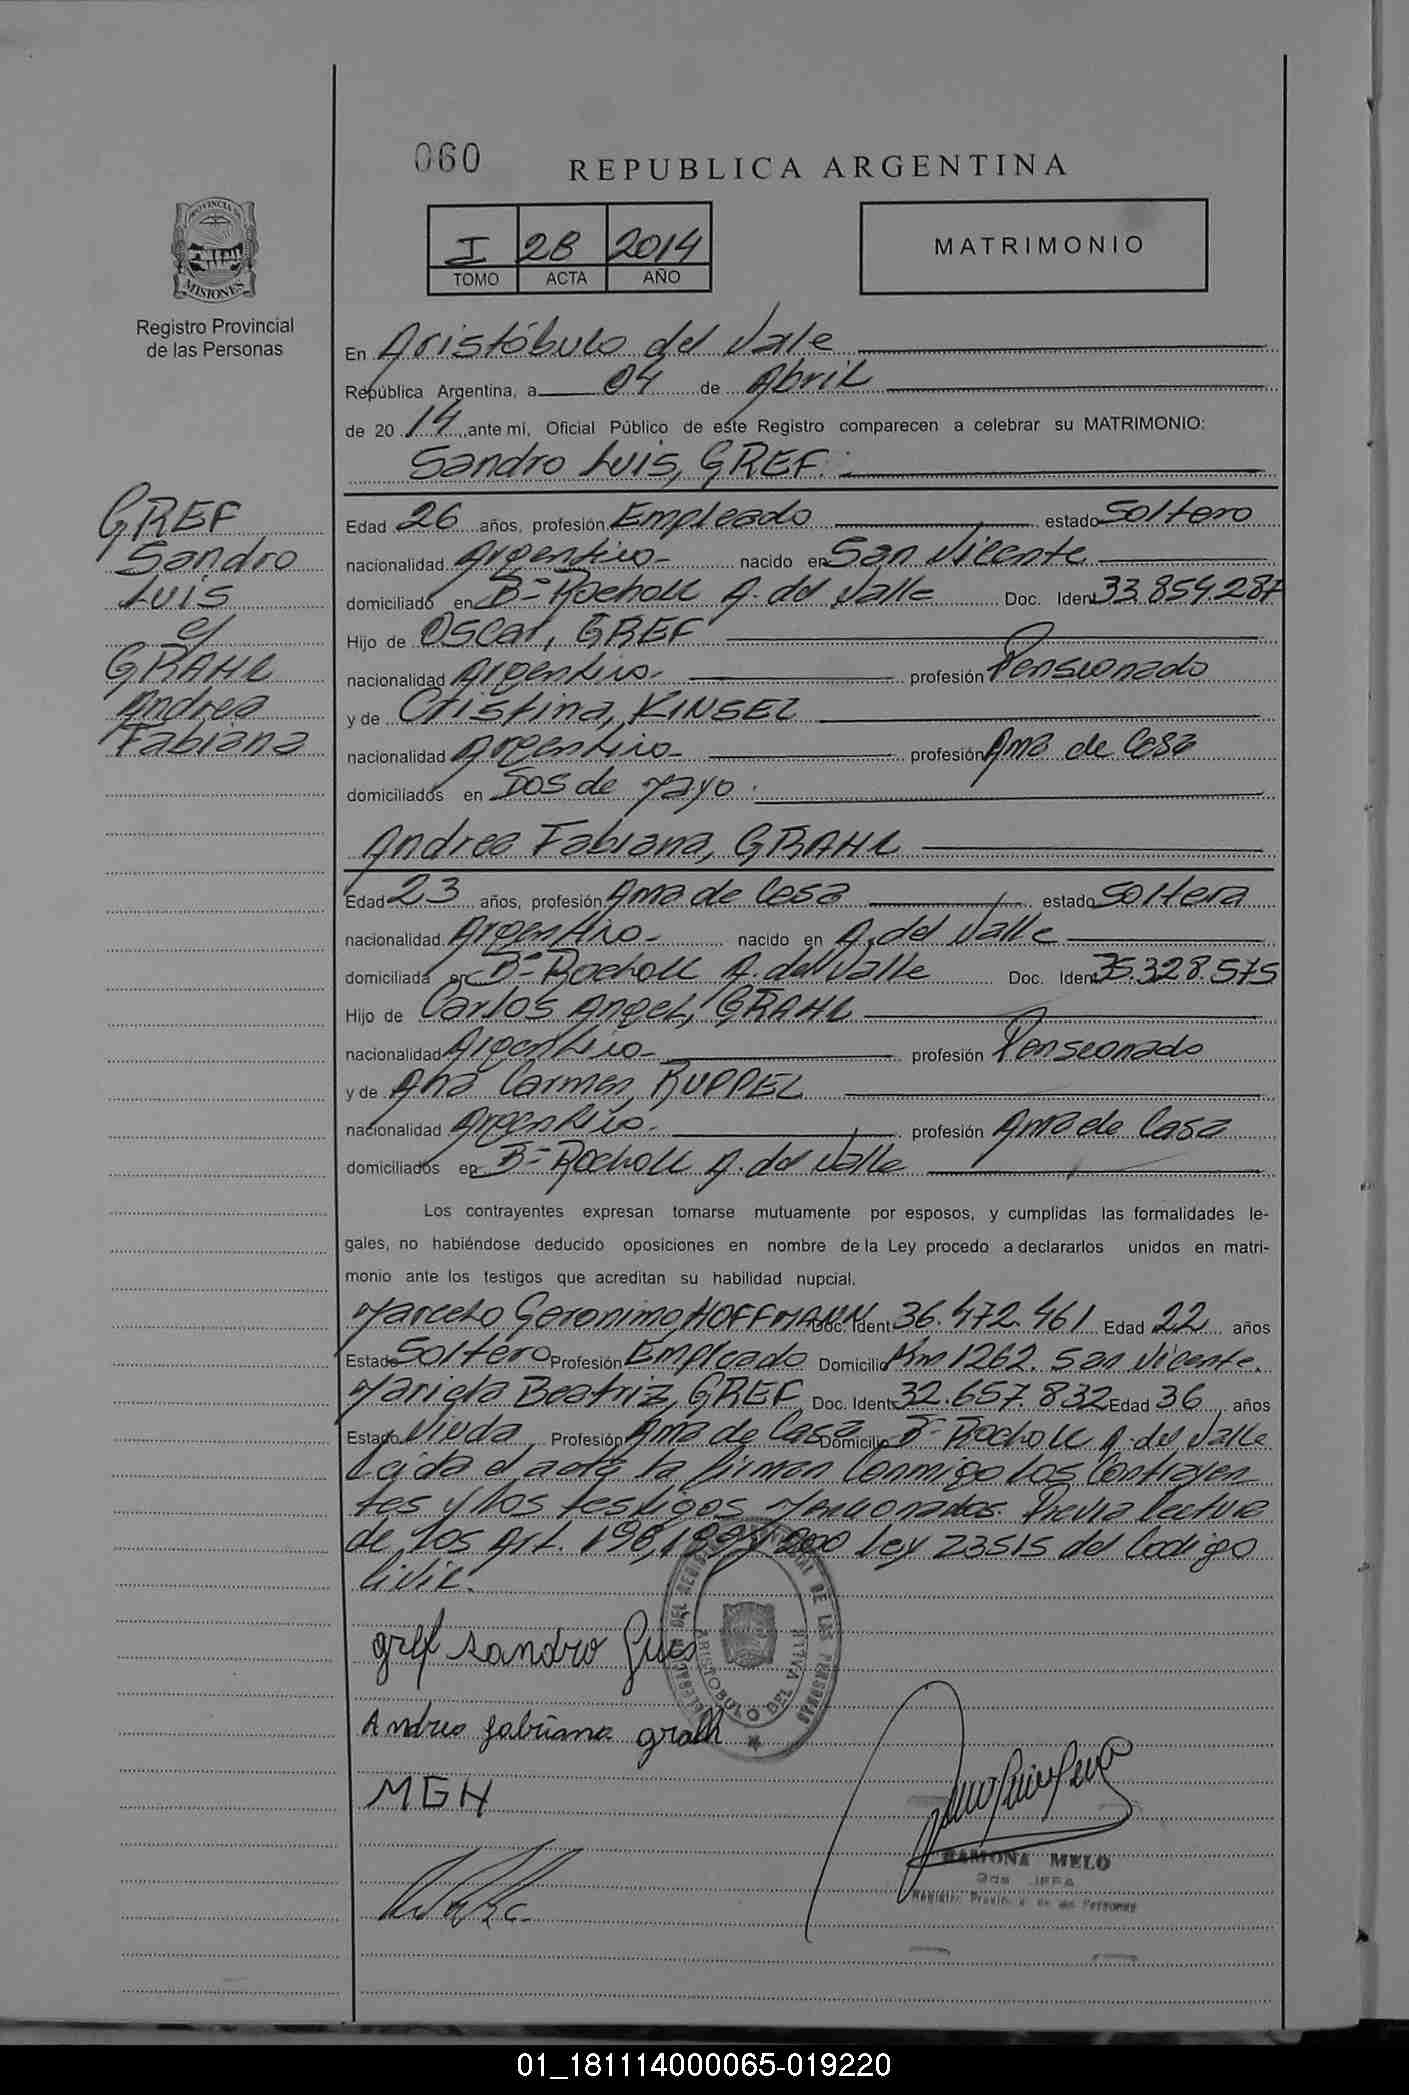 060
REPUBLICA ARGENTINA
I 28 2014
TOMO ACTA AÑO
MATRIMONIO
PROVINCIA
MISIONES
Registro Provincial
de las Personas
En Aristóbulo del Valle
República Argentina, a 04 de Abril
de 2014 ante mí, Oficial Público de este Registro comparecen a celebrar su MATRIMONIO:
Sandro Luis, GREF.
GREF
Sandro
Luis
y
GRAHL
Andrea
Fabiana
Edad 26 años, profesión Empleado estado Soltero
nacionalidad Argentino nacido en San Vicente
domiciliado en B° Rocholl A. del Valle Doc. Ident 33.854.287
Hijo de Oscar, GREF
nacionalidad Argentino profesión Pensionado
y de Cristina, KINSEL
nacionalidad Argentino profesión Ama de Casa
domiciliados en Dos de Mayo.
Andrea Fabiana, GRAHL
Edad 23 años, profesión Ama de Casa estado Soltera
nacionalidad Argentino nacido en A. del Valle
domiciliada en B° Rocholl A. del Valle Doc. Ident 35.328.575
Hijo de Carlos Angel, GRAHL
nacionalidad Argentino profesión Pensionado
y de Ana Carmen, RUPPEL
nacionalidad Argentino. profesión Ama de Casa
domiciliados en B° Rocholl A. del Valle
Los contrayentes expresan tomarse mutuamente por esposos, y cumplidas las formalidades le-
gales, no habiéndose deducido oposiciones en nombre de la Ley procedo a declararlos unidos en matri-
monio ante los testigos que acreditan su habilidad nupcial.
Marcelo Geronimo, HOFFMANN Doc. Ident 36.472.461 Edad 22 años
Estado Soltero Profesión Empleado Domicilio Km 1262. San Vicente.
Mariela Beatriz, GREF Doc. Ident 32.657.832 Edad 36 años
Estado Viuda Profesión Ama de Casa Domicilio B° Rocholl A. del Valle
Leida el acta la firman Conmigo los Contrayen
tes y los testigos Mencionados. Previa lectura
de los Art. 198, 199 y 200 Ley 23515 del Codigo
Civil.
gref sandro luis
Andrea fabiana grahl
MGH
ARISTOBULO DEL VALLE
RAMONA MELO
01_181114000065-019220